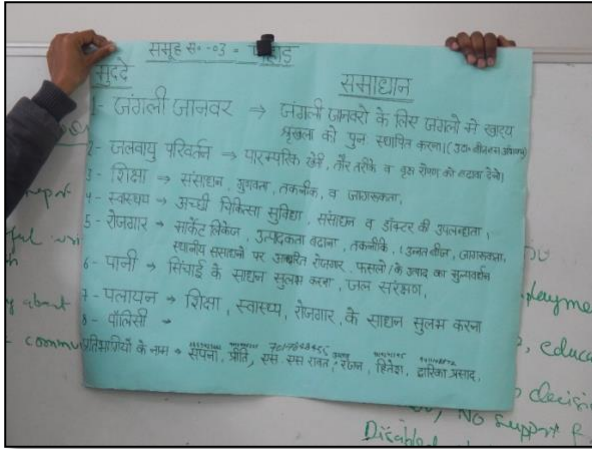 समूह सं०-03 = पहाड़
मुद्दे समाधान
1- जंगली जानवर → जंगली जानवरो के लिए जंगलो में खाद्य
श्रृंखला को पुनः स्थापित करना।
2- जलवायु परिवर्तन → पारम्परिक खेती, तौर तरीके व वृक्ष रोपण को बढ़ावा देना।
3- शिक्षा → संसाधन, गुणवत्ता, तकनीक, व जागरूकता,
4- स्वास्थ्य → अच्छी चिकित्सा सुविधा, संसाधन व डॉक्टर की उपलब्धता,
5- रोजगार → मार्केट लिंकेज, उत्पादकता बढ़ाना, तकनीकि, (उन्नत बीज, जागरूकता,
स्थानीय संसाधनो पर आधारित रोजगार, फसलो के उत्पाद का मूल्यवर्धन
6- पानी → सिंचाई के साधन सुलभ करना, जल संरक्षण,
7- पलायन → शिक्षा, स्वास्थ्य, रोजगार, के साधन सुलभ करना
8- पॉलिसी →
प्रतिभागियों के नाम → सपना, प्रीति, एस एस रावत, रंजन, हितेश, द्वारिका प्रसाद,
about
commu
educa
decisi
No support f
Disabled